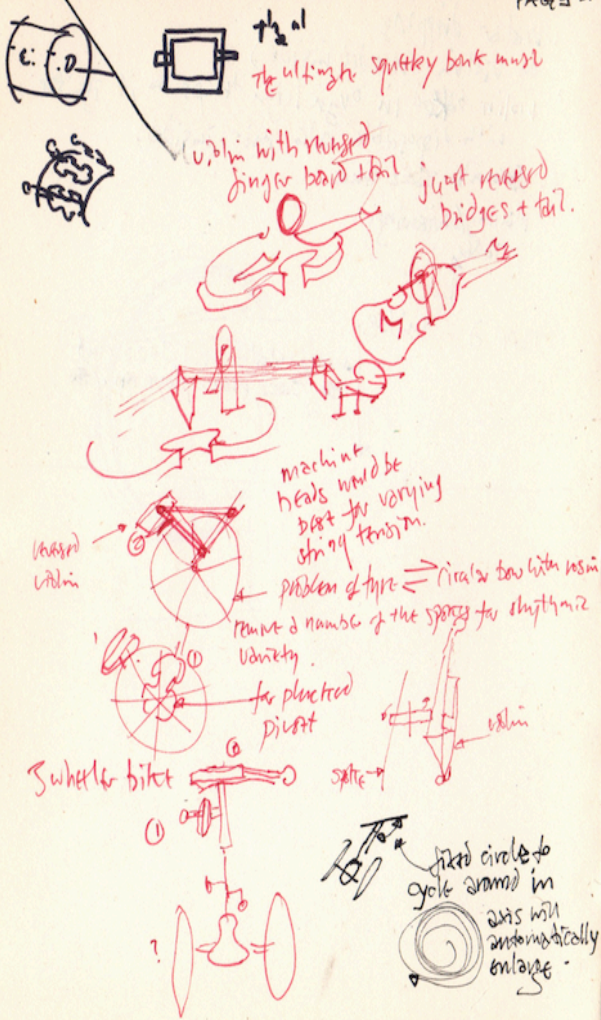 PAGES
C. D
The ultimate squeeky bank
violin with reversed
finger board + tail
just reversed
bridges + tail.
machine
heads would be
best for varying
string tension.
reversed
violin
problem of tyre circular bow with rosin
remove a number of the spokes for rhythmic
variety.
1
for plucked
pivot
violin
spoke
3 wheeler bike
1
?
fixed circle to
cycle around in
axis will
automatically
enlarge.